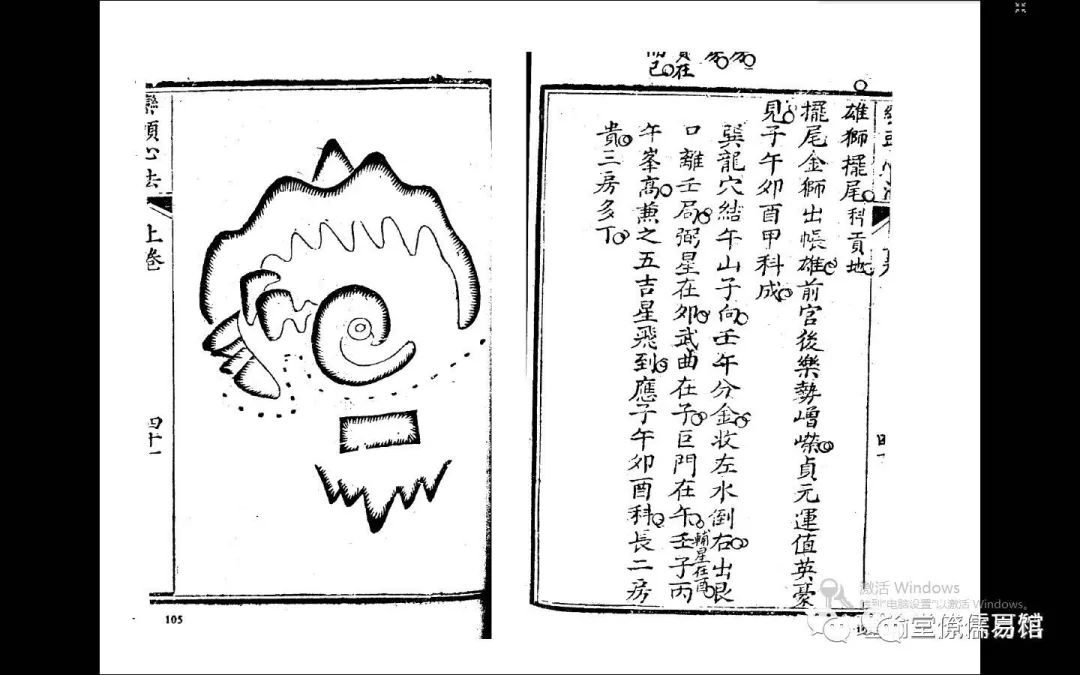 雄獅擺尾。科貢地
擺尾金獅出帳雄。前宮後樂勢嶒嶸。貞元運值英豪
見。子午卯酉甲科成。
巽龍穴結午山子向。壬午分金。收左水倒右。出艮
口離壬局。弼星在卯。武曲在子。巨門在午。輔星在酉。壬子丙
午峯高。兼之五吉星飛到。應子午卯酉科。長二房
貴。三房多丁。
上卷
四十一
105
激活 Windows
转到"电脑设置"以激活 Windows。
堂僚儒易館